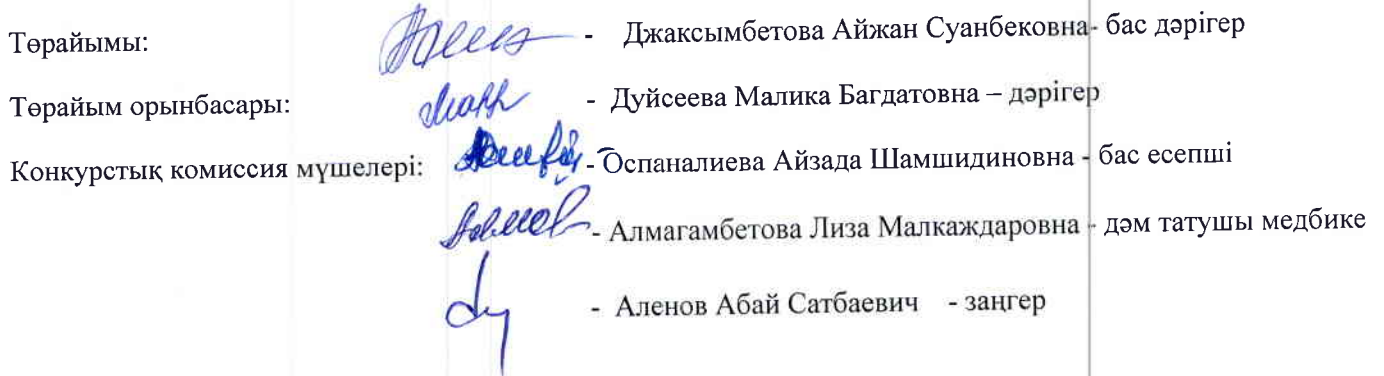 Төрайымы: - Джаксымбетова Айжан Суанбековна- бас дәрігер
Төрайым орынбасары: - Дуйсеева Малика Багдатовна – дәрігер
Конкурстық комиссия мүшелері: - Оспаналиева Айзада Шамшидиновна - бас есепші
- Алмагамбетова Лиза Малкаждаровна - дәм татушы медбике
- Аленов Абай Сатбаевич - заңгер